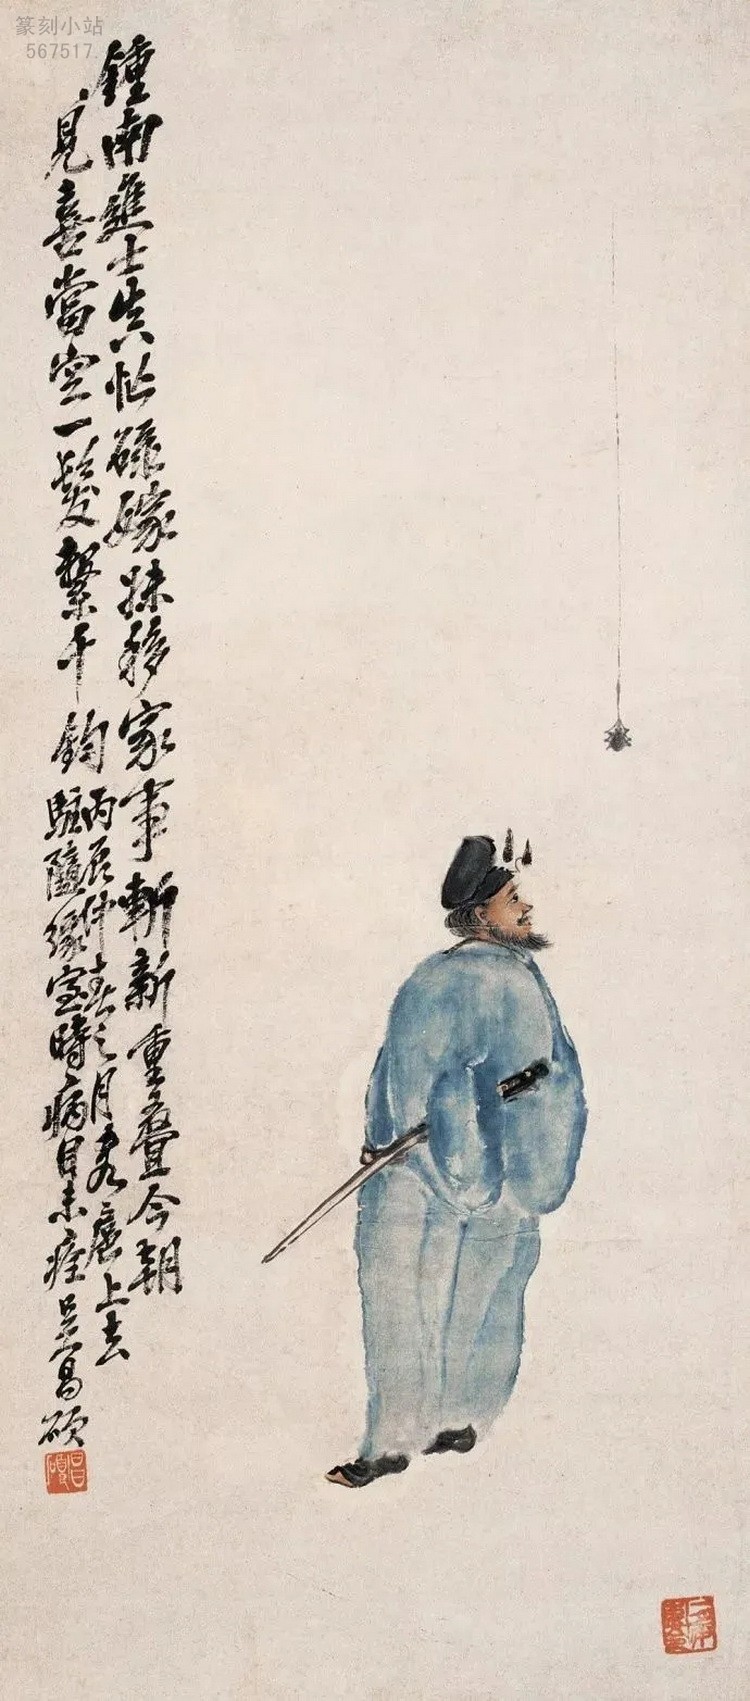 篆刻小站
567517.
鍾南進士真忙碌嫁妹移家事斬新重疊今朝
見喜當空一髮繫千鈞
丙辰仲春之月客扈上去
駐隨緣室時病目未痊吳昌碩